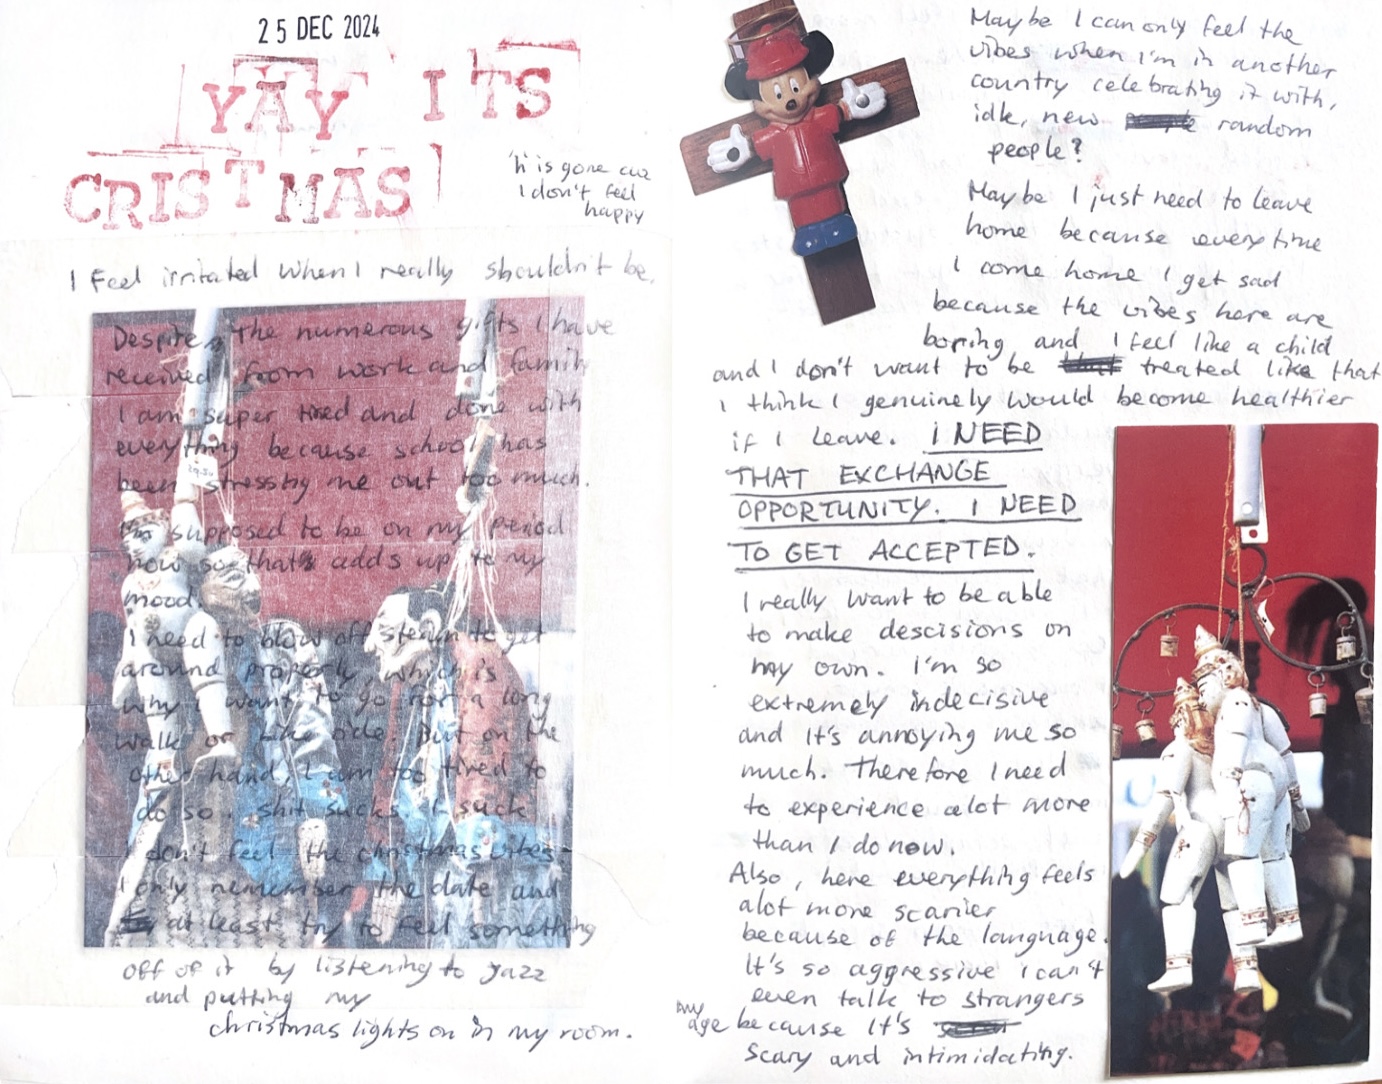 25 DEC 2024
YAY ITS
CRISTMAS
'h is gone cuz
I don't feel
happy
I feel irritated when I really shouldn't be.
Despite the numerous gifts I have
received from work and family
I am super tired and done with
everything because school has
been stressing me out too much.
I'm supposed to be on my period
now so that's adds up to my
mood.
I need to blow off steam to get
around properly, which is
why I want to go for a long
walk or bike ride. But on the
other hand, I am too tired to
do so. Shit sucks. I suck
I don't feel the christmas vibes.
I only remember the date and
at least try to feel something
off of it by listening to jazz
and putting my
christmas lights on in my room.
Maybe I can only feel the
vibes when I'm in another
country celebrating it with,
idk, new random
people?
Maybe I just need to leave
home because everytime
I come home I get sad
because the vibes here are
boring and I feel like a child
and I don't want to be treated like that
I think I genuinely would become healthier
if I leave. I NEED
THAT EXCHANGE
OPPORTUNITY. I NEED
TO GET ACCEPTED.
I really want to be able
to make descisions on
my own. I'm so
extremely indecisive
and it's annoying me so
much. Therefore I need
to experience alot more
than I do now.
Also, here everything feels
alot more scarier
because of the language.
It's so aggressive i can't
even talk to strangers
my
age because it's
scary and intimidating.